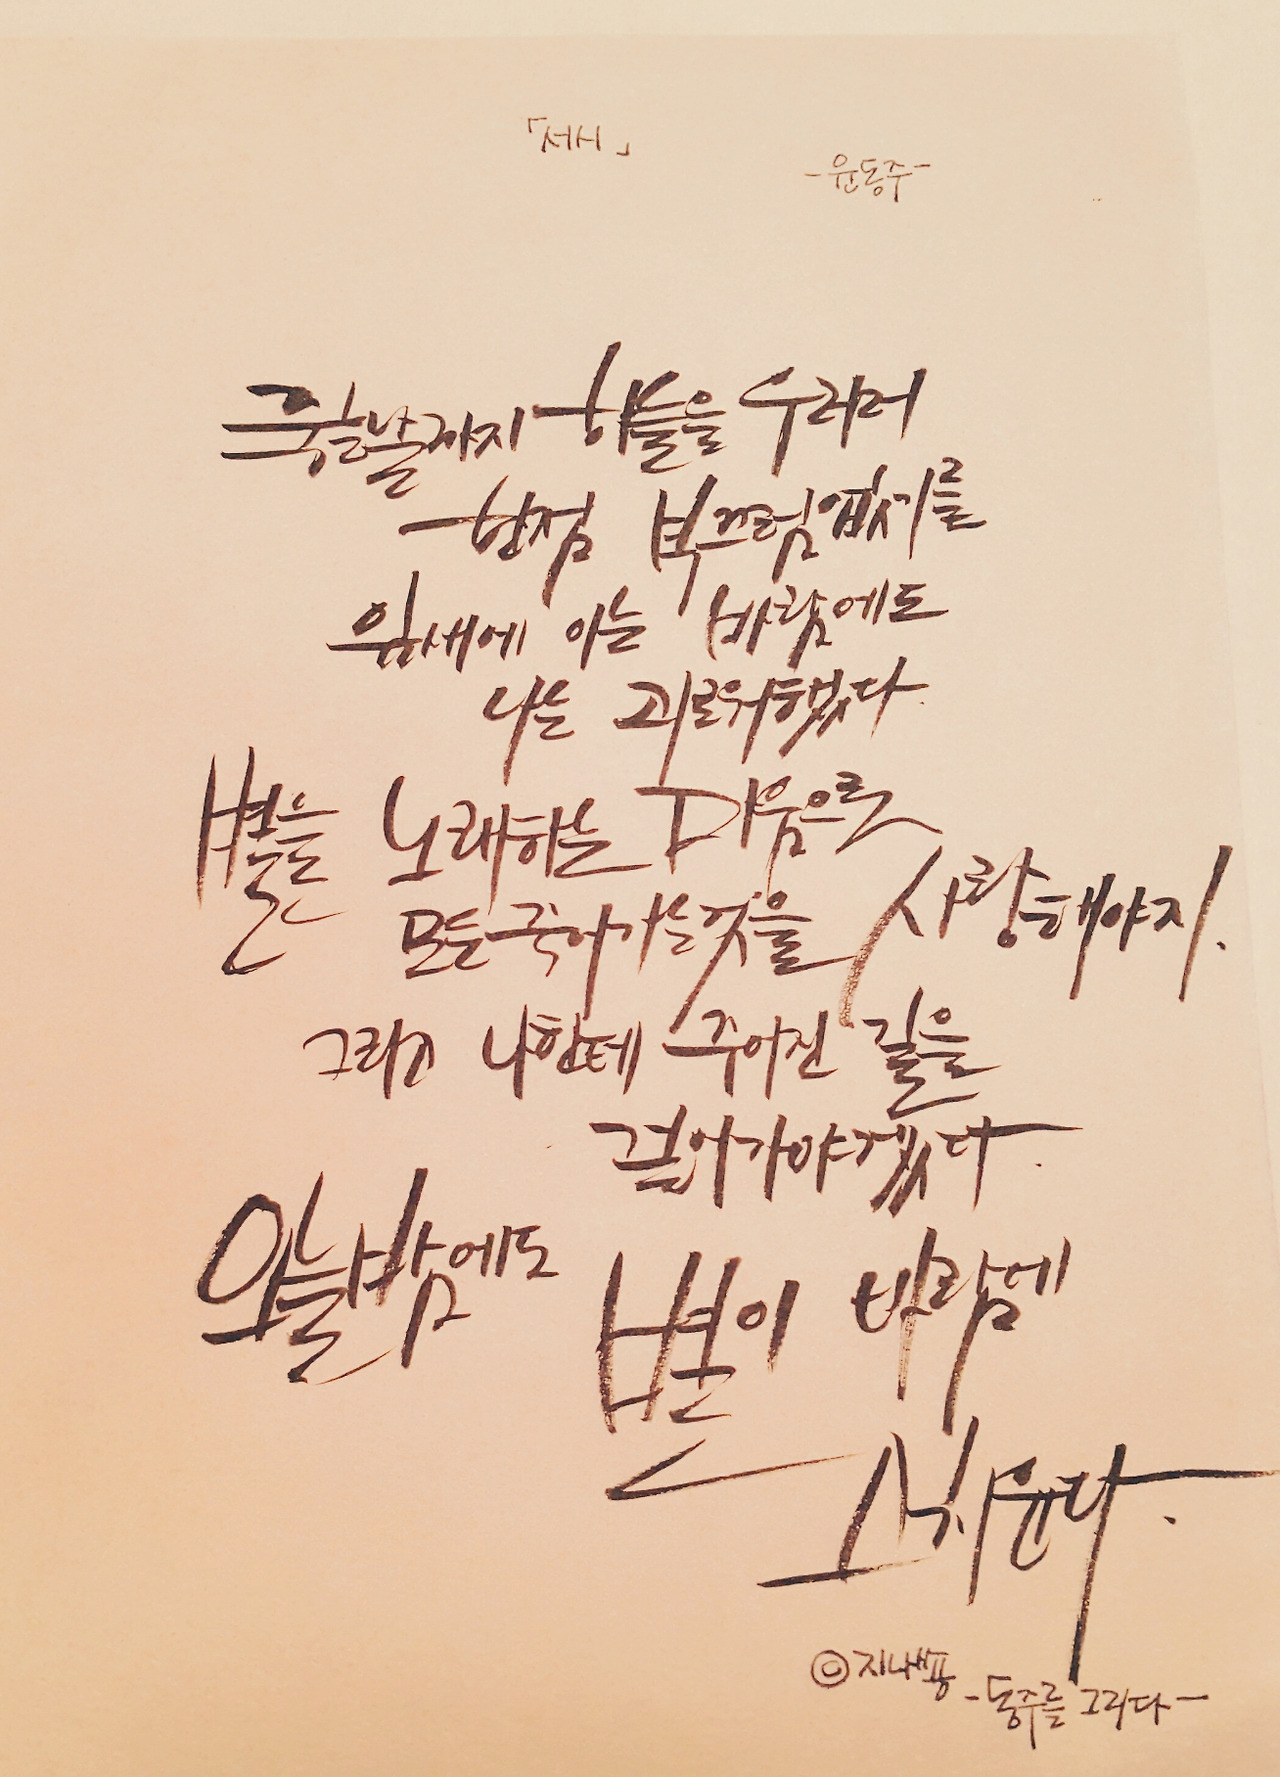 「서시」
-윤동주-
죽는날까지 하늘을 우러러
한점 부끄럼없기를
잎새에 이는 바람에도
나는 괴로워했다.
별을 노래하는 마음으로
모든죽어가는것을 사랑해야지.
그리고 나한테 주어진 길을
걸어가야겠다.
오늘밤에도
별이 바람에
스치운다.
©
-동주를 그리다-